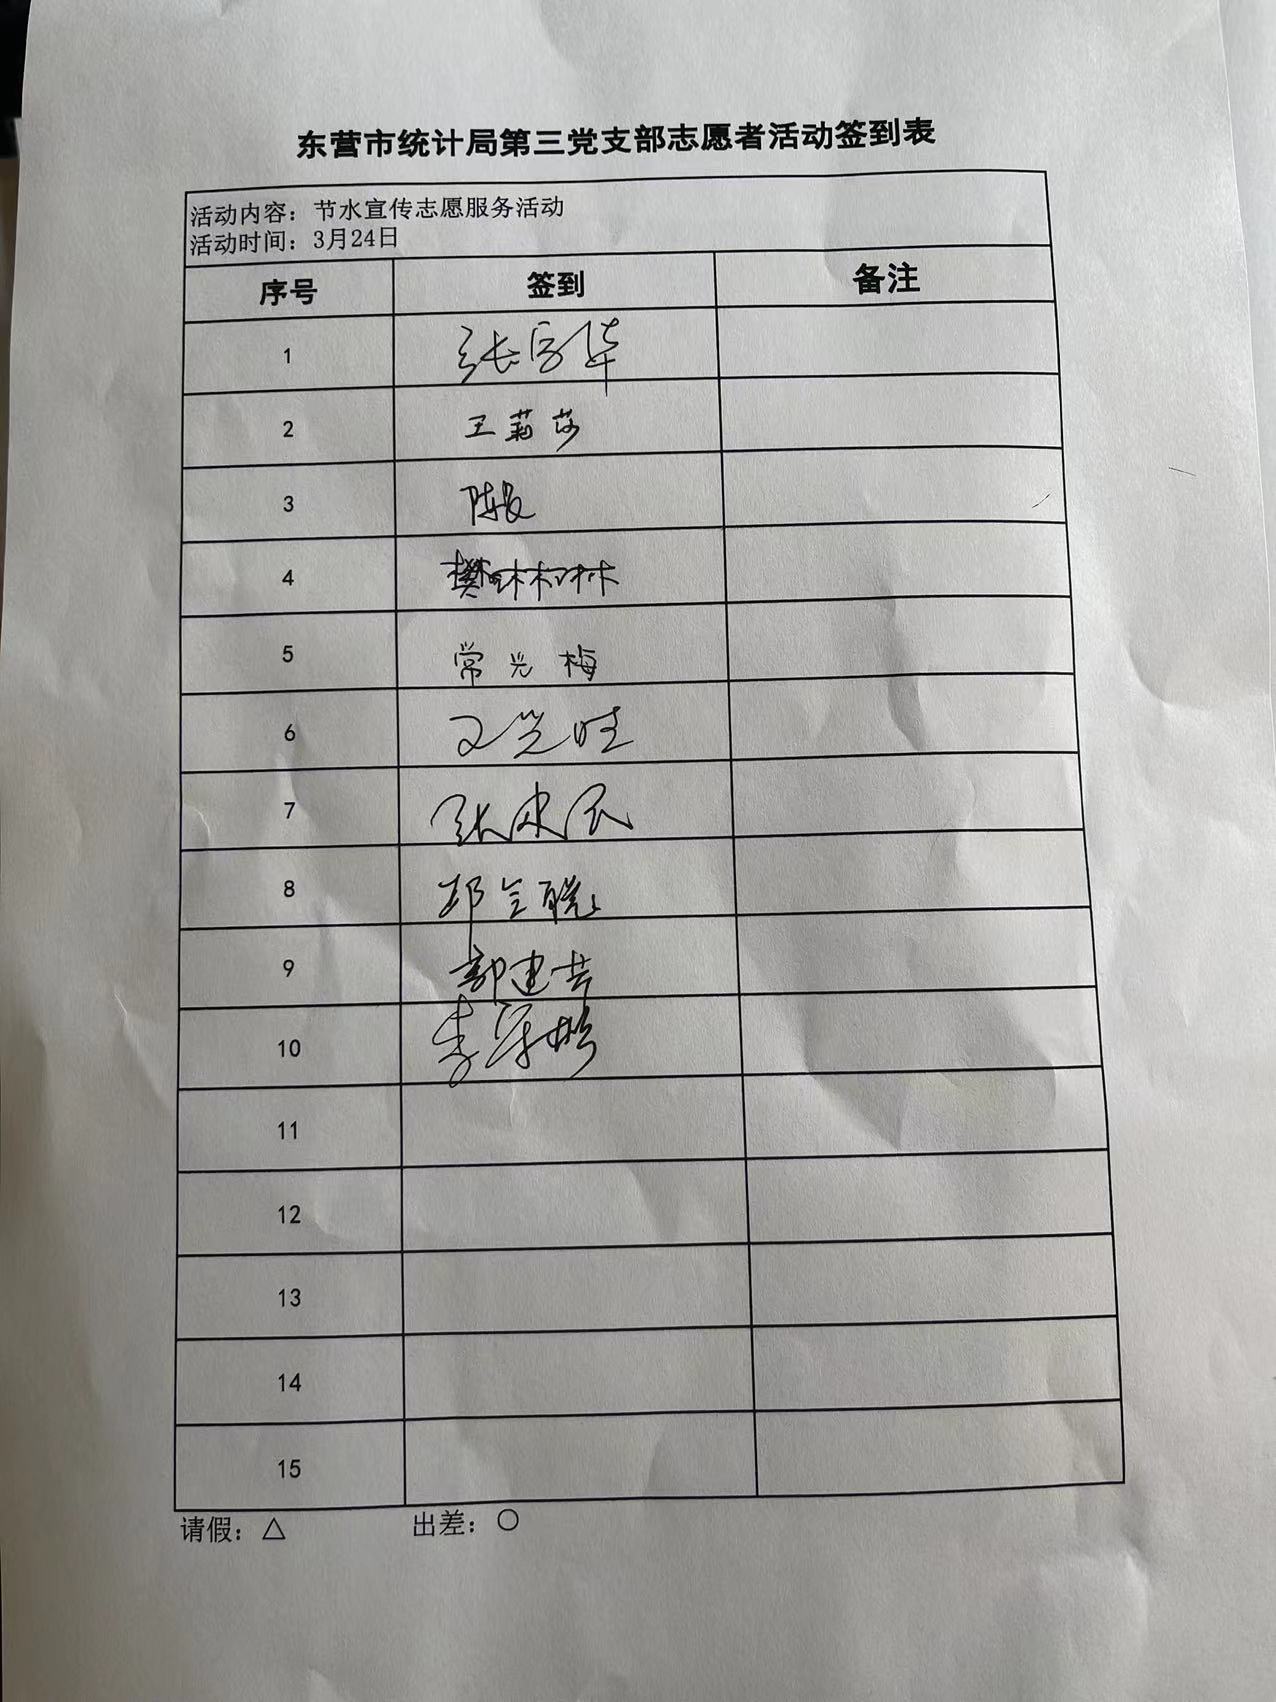 东营市统计局第三党支部志愿者活动签到表
活动内容：节水宣传志愿服务活动
活动时间：3月24日
序号 签到 备注
1 张
2 王莉莎
3 陈
4 樊琳琳
5 常兴梅
6
7 张建民
8 邱
9 郭建芸
10 李
11
12
13
14
15
请假：△ 出差：○